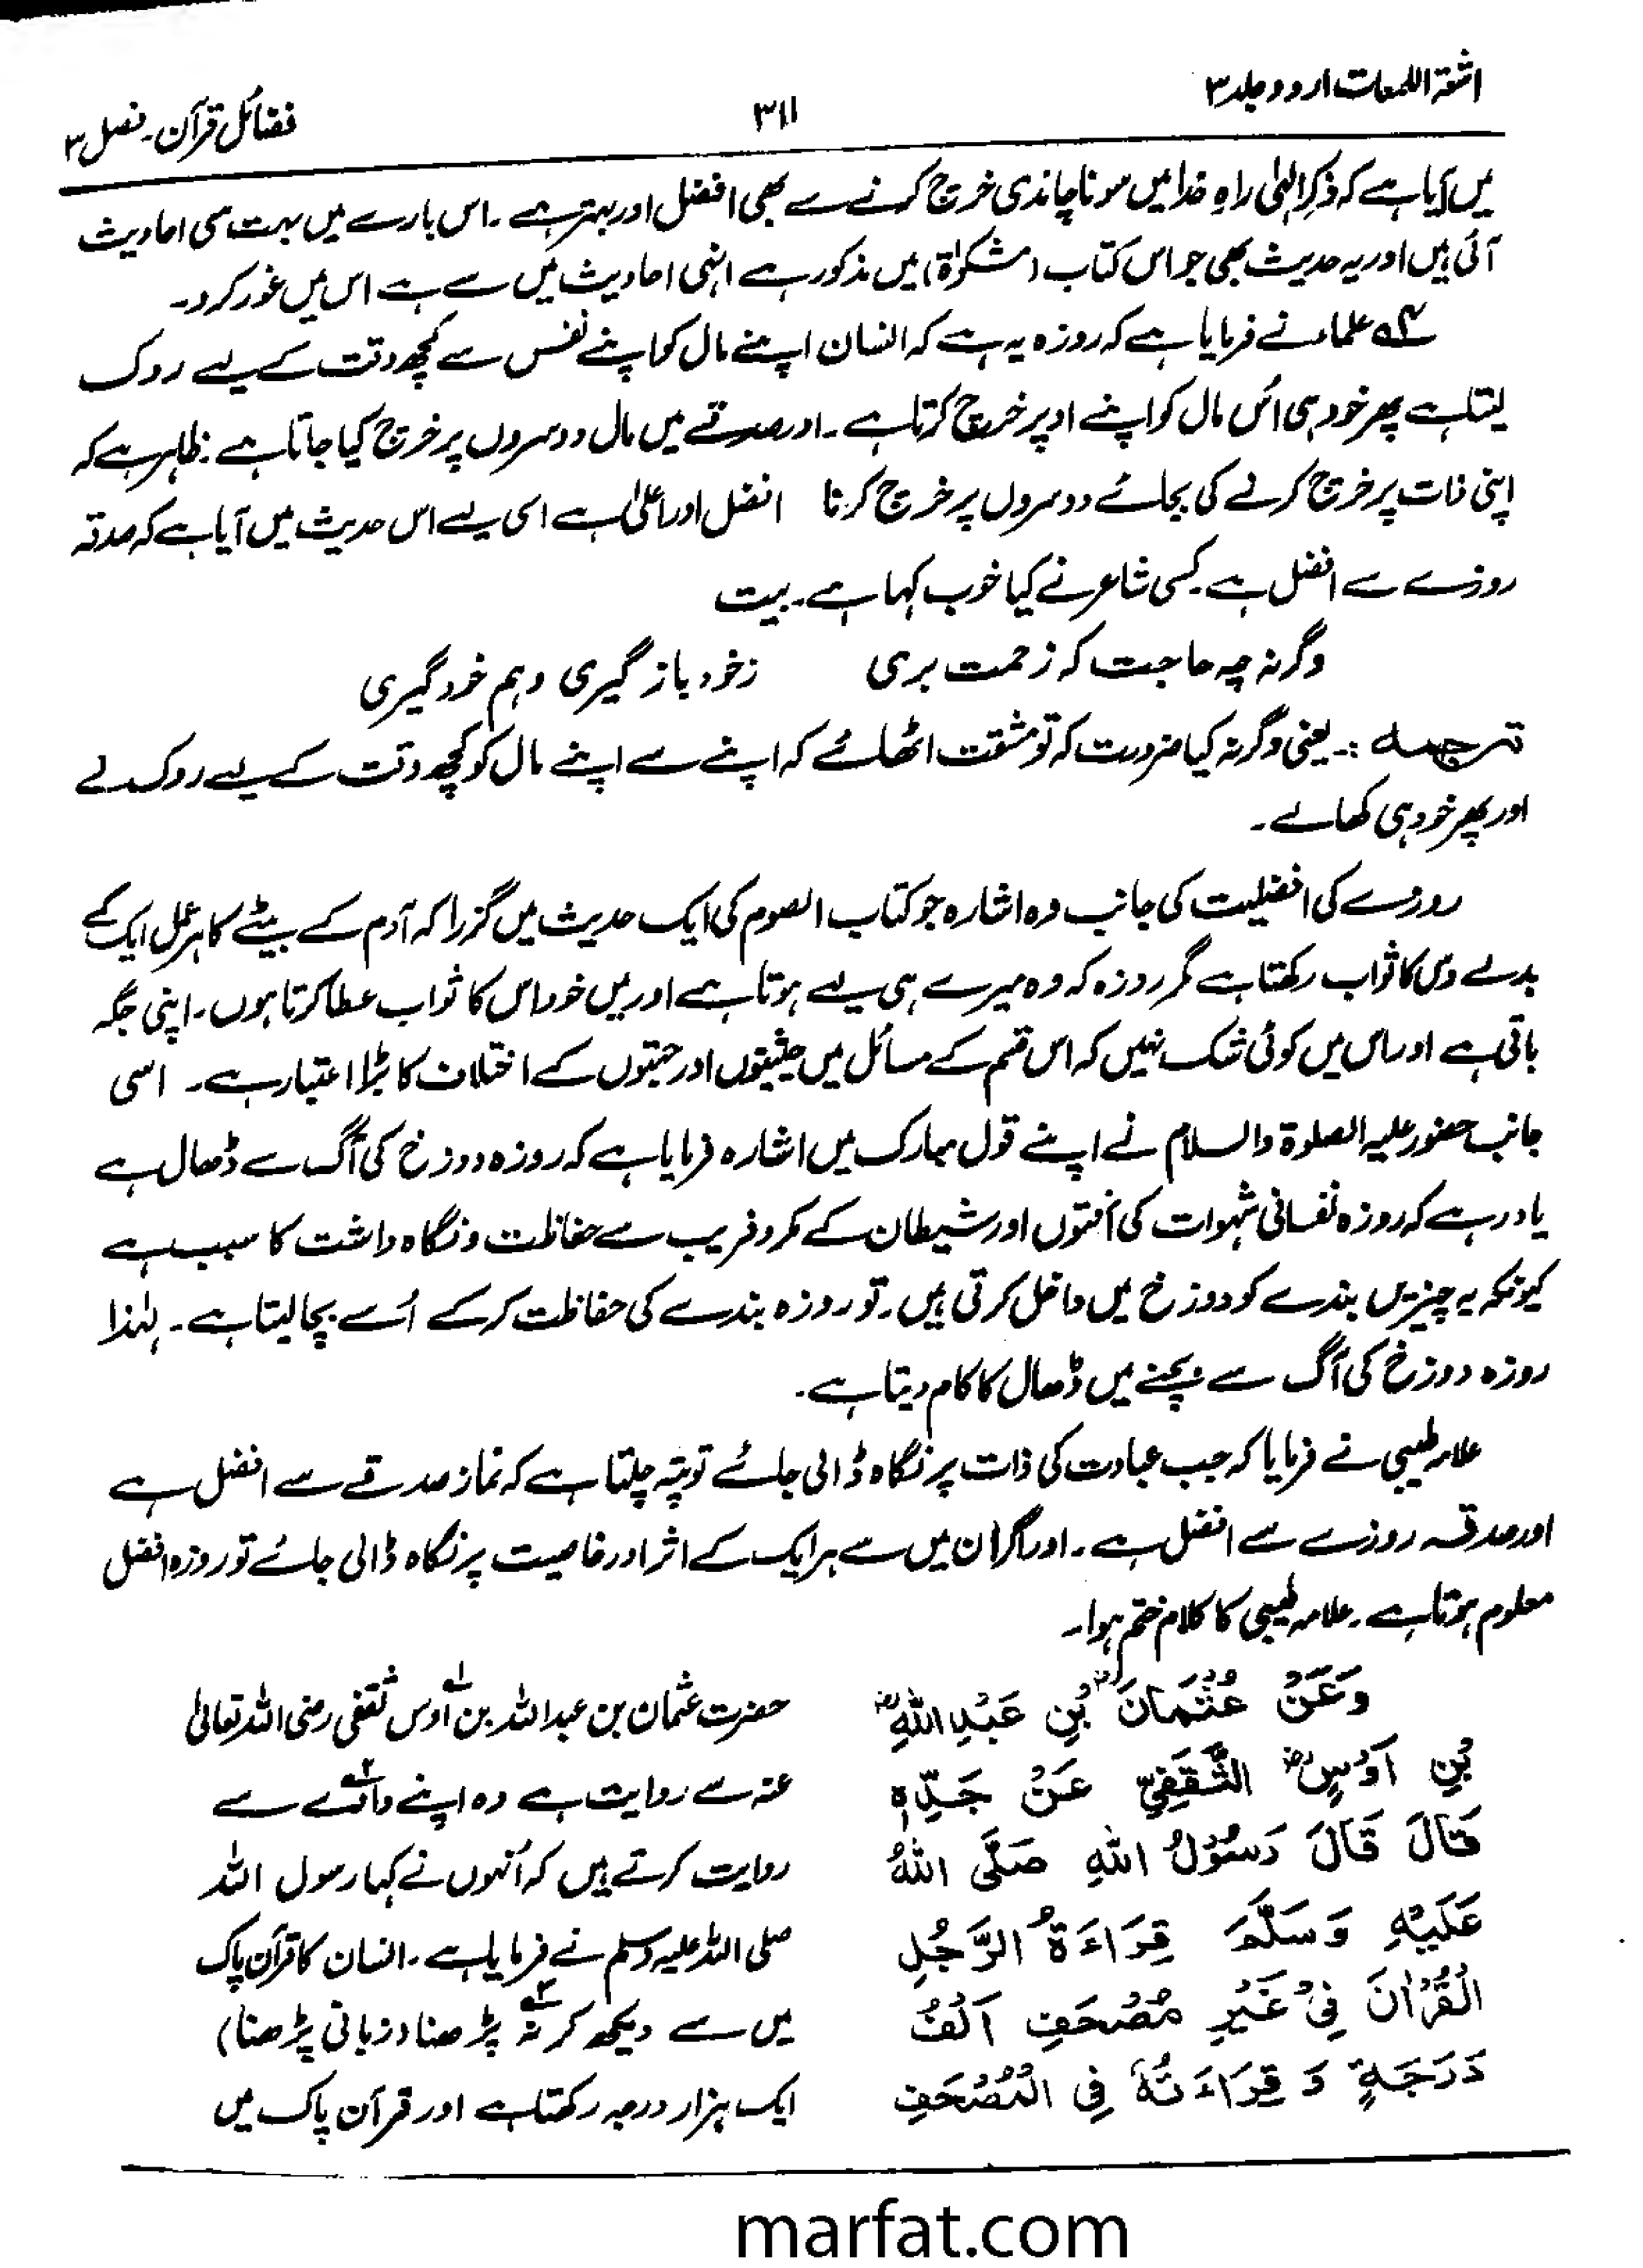 اشعۃ اللمعات اردو جلد ۳
۳۱۱
فضائل قرآن۔ فصل ۳
میں آیا ہے کہ ذکر الٰہی راہِ خدا میں سونا چاندی خرچ کرنے سے بھی افضل اور بہتر ہے۔ اس بارے میں بہت سی احادیث
آئی ہیں اور یہ حدیث بھی جو اس کتاب (مشکوٰۃ) میں مذکور ہے انہی احادیث میں سے ہے اس میں غور کرو۔
علماء نے فرمایا ہے کہ روزہ یہ ہے کہ انسان اپنے مال کو اپنے نفس سے کچھ وقت کے لیے روک
لیتا ہے پھر خود ہی اُس مال کو اپنے اوپر خرچ کرتا ہے۔ اور صدقے میں مال دوسروں پر خرچ کیا جاتا ہے ظاہر ہے کہ
اپنی ذات پر خرچ کرنے کی بجائے دوسروں پر خرچ کرنا افضل اور اعلیٰ ہے اسی لیے اس حدیث میں آیا ہے کہ صدقہ
روزے سے افضل ہے کسی شاعر نے کیا خوب کہا ہے۔ بیت
وگرنہ چہ حاجت کہ زحمت بری زخود بازگیری وہم خود گیری
ترجمہ :۔ یعنی وگرنہ کیا ضرورت کہ تو مشقت اٹھائے کہ اپنے سے اپنے مال کو کچھ وقت کے لیے روک لے
اور پھر خود ہی کھا لے۔
روزے کی افضلیت کی جانب وہ اشارہ جو کتاب الصوم کی ایک حدیث میں گزرا کہ آدم کے بیٹے کا ہر عمل ایک کے
بدلے دس کا ثواب رکھتا ہے مگر روزہ کہ وہ میرے ہی لیے ہوتا ہے اور میں خود اس کا ثواب عطا کرتا ہوں۔ اپنی جگہ
باقی ہے اور اس میں کوئی شک نہیں کہ اس قسم کے مسائل میں حیثیتوں اور جہتوں کے اختلاف کا بڑا اعتبار ہے۔ اسی
جانب حضور علیہ الصلوۃ والسلام نے اپنے قول مبارک میں اشارہ فرمایا ہے کہ روزہ دوزخ کی آگ سے ڈھال ہے
یاد رہے کہ روزہ نفسانی شہوات کی آفتوں اور شیطان کے مکر و فریب سے حفاظت و نگاہ داشت کا سبب ہے
کیونکہ یہ چیزیں بندے کو دوزخ میں داخل کرتی ہیں۔ تو روزہ بندے کی حفاظت کر کے اُسے بچا لیتا ہے۔ لہٰذا
روزہ دوزخ کی آگ سے بچنے میں ڈھال کا کام دیتا ہے۔
علامہ طیبی نے فرمایا کہ جب عبادت کی ذات پر نگاہ ڈالی جائے تو پتہ چلتا ہے کہ نماز صدقے سے افضل ہے
اور صدقہ روزے سے افضل ہے۔ اور اگر ان میں سے ہر ایک کے اثر اور خاصیت پر نگاہ ڈالی جائے تو روزہ افضل
معلوم ہوتا ہے۔ علامہ طیبی کا کلام ختم ہوا۔
وَعَنْ عُثْمَانَ بْنِ عَبْدِ اللّٰهِ
بْنِ اَوْسٍ الثَّقَفِيِّ عَنْ جَدِّهٖ
قَالَ قَالَ رَسُوْلُ اللّٰهِ صَلَّى اللّٰهُ
عَلَيْهِ وَسَلَّمَ قِرَاءَةُ الرَّجُلِ
الْقُرْاٰنَ فِيْ غَيْرِ مُصْحَفِ اَلْفُ
دَرَجَةٍ وَ قِرَاءَتُهٗ فِي الْمُصْحَفِ
حضرت عثمان بن عبد اللہ بن اوس۱ ثقفی رضی اللہ تعالیٰ
عنہ سے روایت ہے وہ اپنے دادا۲ سے
روایت کرتے ہیں کہ اُنہوں نے کہا رسول اللہ
صلی اللہ علیہ وسلم نے فرمایا ہے۔ انسان کا قرآن پاک
میں سے دیکھ کر نہ۳ پڑھنا (زبانی پڑھنا)
ایک ہزار درجہ رکھتا ہے اور قرآن پاک میں
marfat.com